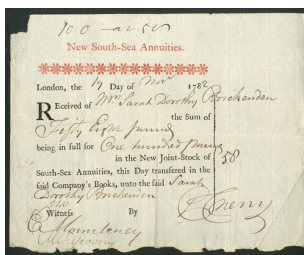 100 — at 58
New South-Sea Annuities.
London, the 19 Day of Novr 1782
Received of Mrs Sarah Dorothy
the Sum of
Fifty Eight pounds
being in full for One hundred pounds
in the New Joint-Stock of 58
South-Sea Annuities, this Day transfered in the
said Company's Books, unto the said Sarah
Dorothy
Witness By